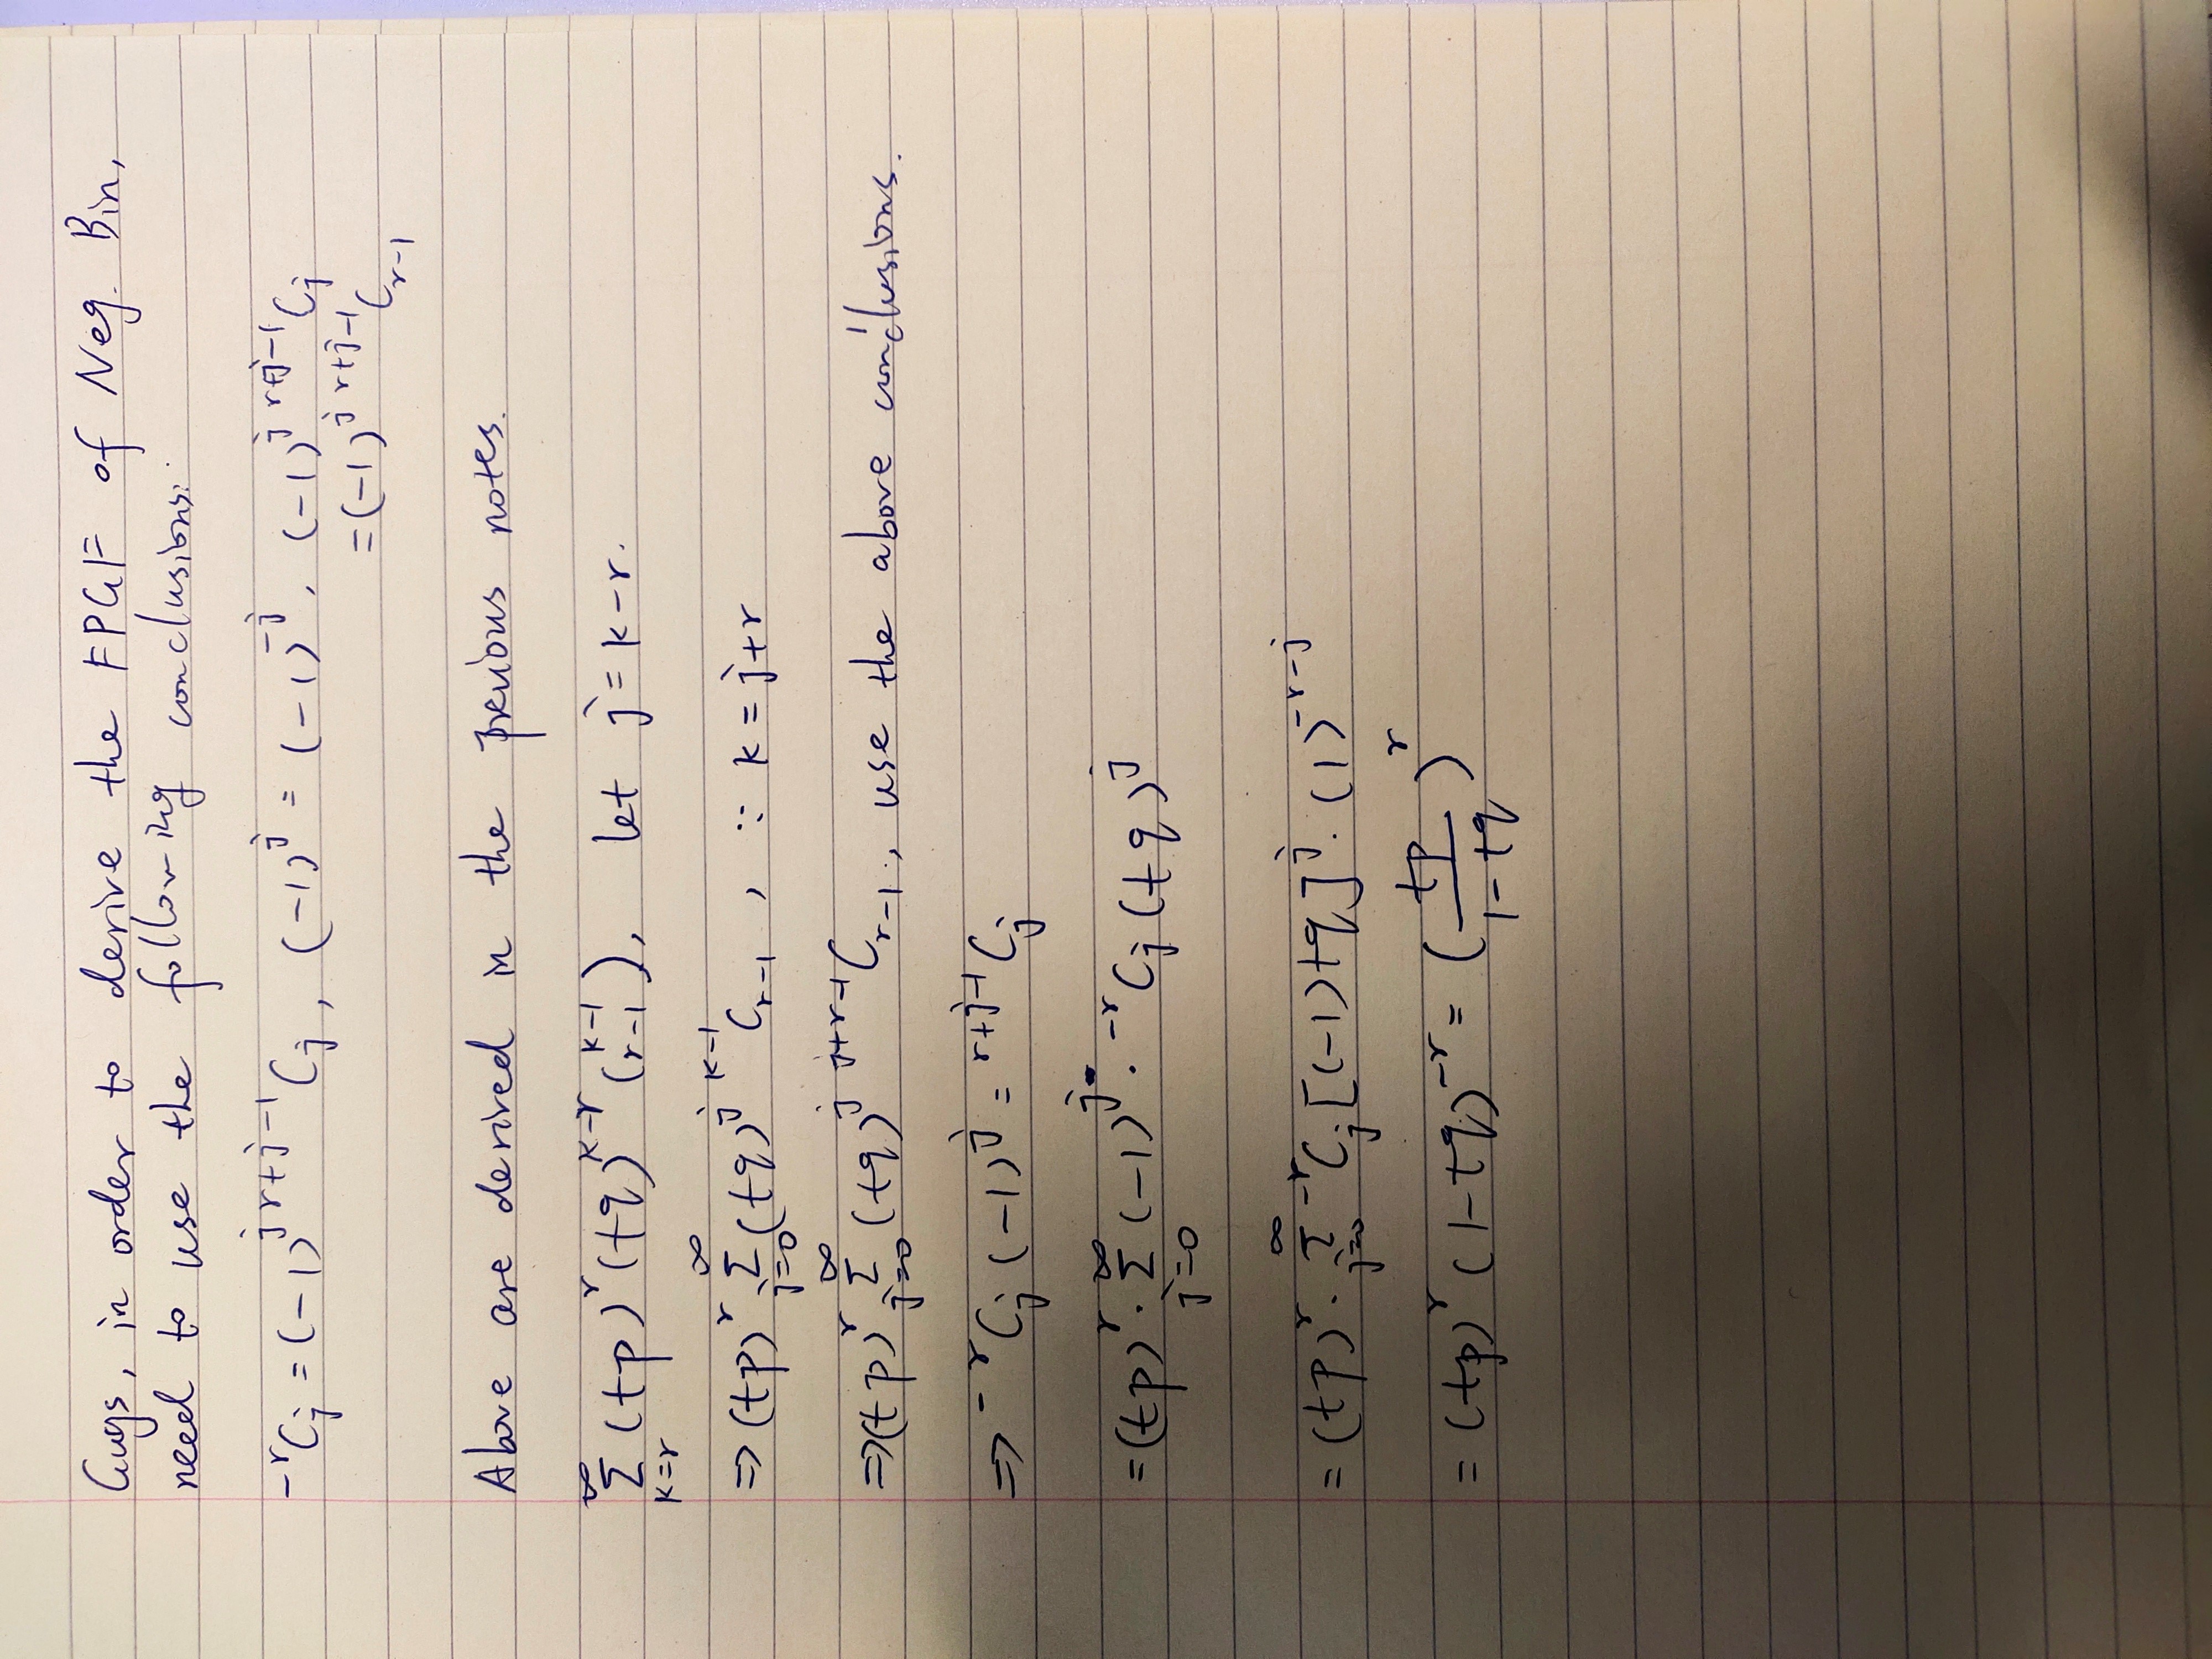 Guys, in order to derive the FPGF of Neg. Bin,
need to use the following conclusions:
⁻ʳCⱼ = (-1)ʲ ʳ⁺ʲ⁻¹Cⱼ, (-1)ʲ = (-1)⁻ʲ, (-1)ʲ ʳ⁺ʲ⁻¹Cⱼ
= (-1)ʲ ʳ⁺ʲ⁻¹Cᵣ₋₁
Above are derived in the previous notes.
∞Σk=r (tp)ʳ(tq)ᵏ⁻ʳ(k-1 r-1), let j=k-r.
⇒ (tp)ʳ ∞Σj=0 (tq)ʲ ᵏ⁻¹Cᵣ₋₁, ∵ k=j+r
⇒ (tp)ʳ ∞Σj=0 (tq)ʲ ʲ⁺ʳ⁻¹Cᵣ₋₁, use the above conclusions.
⇒ ⁻ʳCⱼ(-1)ʲ = ʳ⁺ʲ⁻¹Cⱼ
= (tp)ʳ · ∞Σj=0 (-1)ʲ · ⁻ʳCⱼ(tq)ʲ
= (tp)ʳ · ∞Σj=0 ⁻ʳCⱼ[(-1)tq]ʲ · (1)⁻ʳ⁻ʲ
= (tp)ʳ(1-tq)⁻ʳ = (tp/1-tq)ʳ